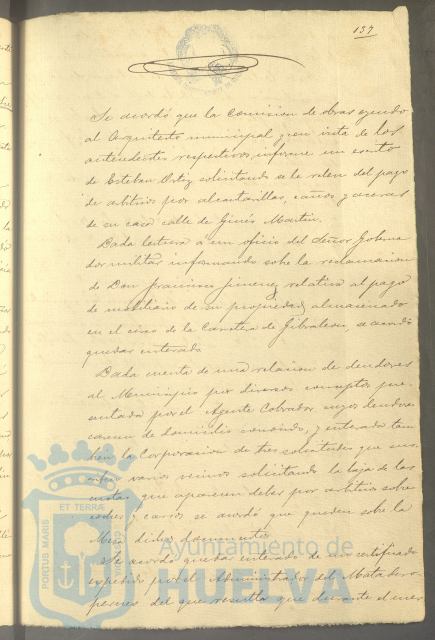 137
Se acordó que la Comision de obras oyendo
al Arquitecto municipal y con vista de los
antecedentes respectivos informe un escrito
de Esteban Ortiz solicitando se le releve del pago
de arbitrios por alcantarillas, caños y aceras
de su casa calle de Ginés Martin.
Dada lectura á un oficio del Señor Goberna
dor militar informando sobre la reclamacion
de Don Francisco Jimenez relativa al pago
de mobiliario de su propiedad almacenado
en el circo de la Carretera de Gibraleon, se acordó
quedar enterado
Dada cuenta de una relacion de deudores
al Municipio por diversos conceptos pre-
sentada por el Agente Cobrador cuyos deudores
carecen de domicilio conocido, y enterada tam
bien la Corporacion de tres solicitudes que sus
criben varios vecinos solicitando la baja de las
cuotas que aparecen deber por arbitrio sobre
coches y carros se acordó que queden sobre la
Mesa dichos documentos.
Se acordó quedar enterado de una certificado
expedido por el Administrador del Matadero
del que resulta que durante el mes
PORTUS MARIS
ET TERRÆ
Ayuntamiento de
HUELVA